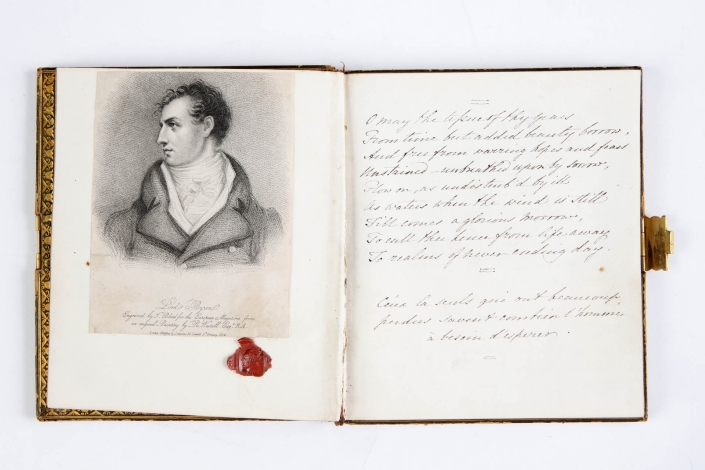 Lord Byron
Engraved by T. Blood for the European Magazine from
an original Painting by R. Westall, Esqr. R.A.
O may the tissue of thy years
From time but added beauty borrow,
And free from warring hopes and fears
Unstained – unbreathed upon by sorrow,
Flow on, as undisturb'd by ill
As waters when the wind is still
Till comes a glorious morrow,
To call thee hence from life away
To realms of never ending day.
Ceux la seuls qui ont beaucoup
perdus savent combien l'homme
à besoin d'esperer.